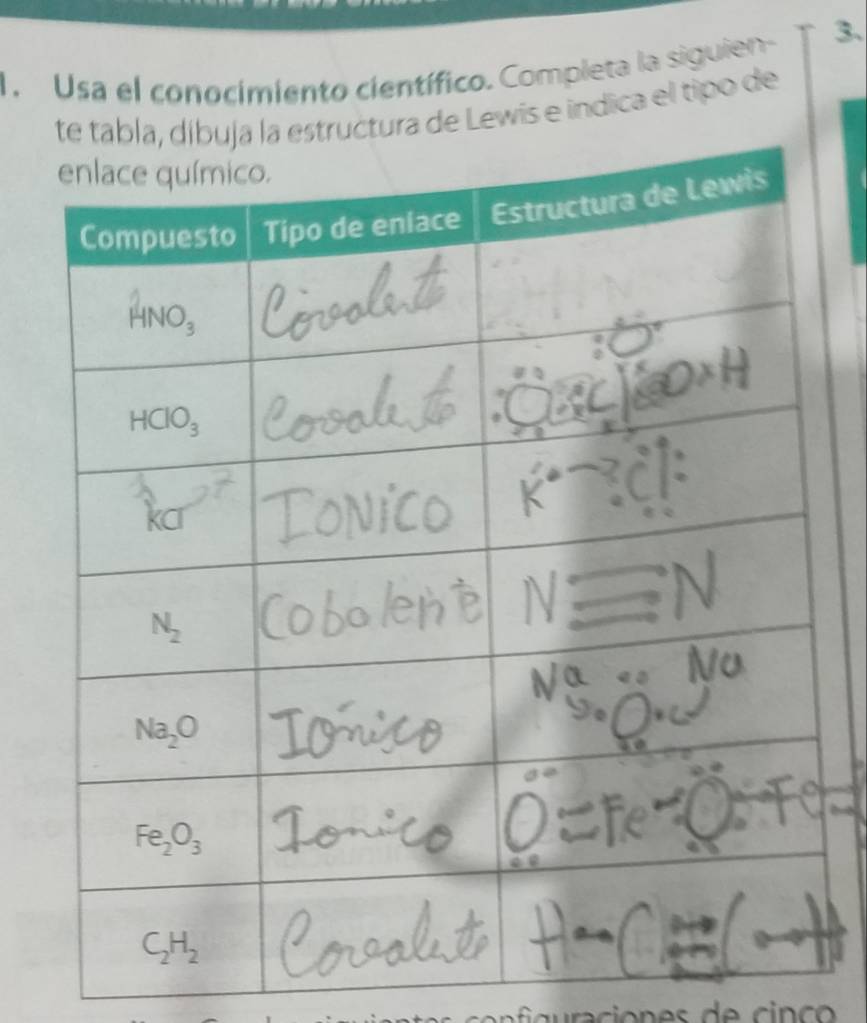 3.
1. Usa el conocimiento científico. Completa la siguien-
te tabla, dibuja la estructura de Lewis e indica el tipo de
enlace químico.
Compuesto Tipo de enlace Estructura de Lewis
HNO₃ Covalente
HClO₃ Covalente O Cl O H
kCl Ionico K Cl
N₂ Cobalente N≡N
Na₂O Iónico Na O Na
Fe₂O₃ Ionico O=Fe-O-Fe=
C₂H₂ Covalente H-C≡C-H
configuraciones de cinco